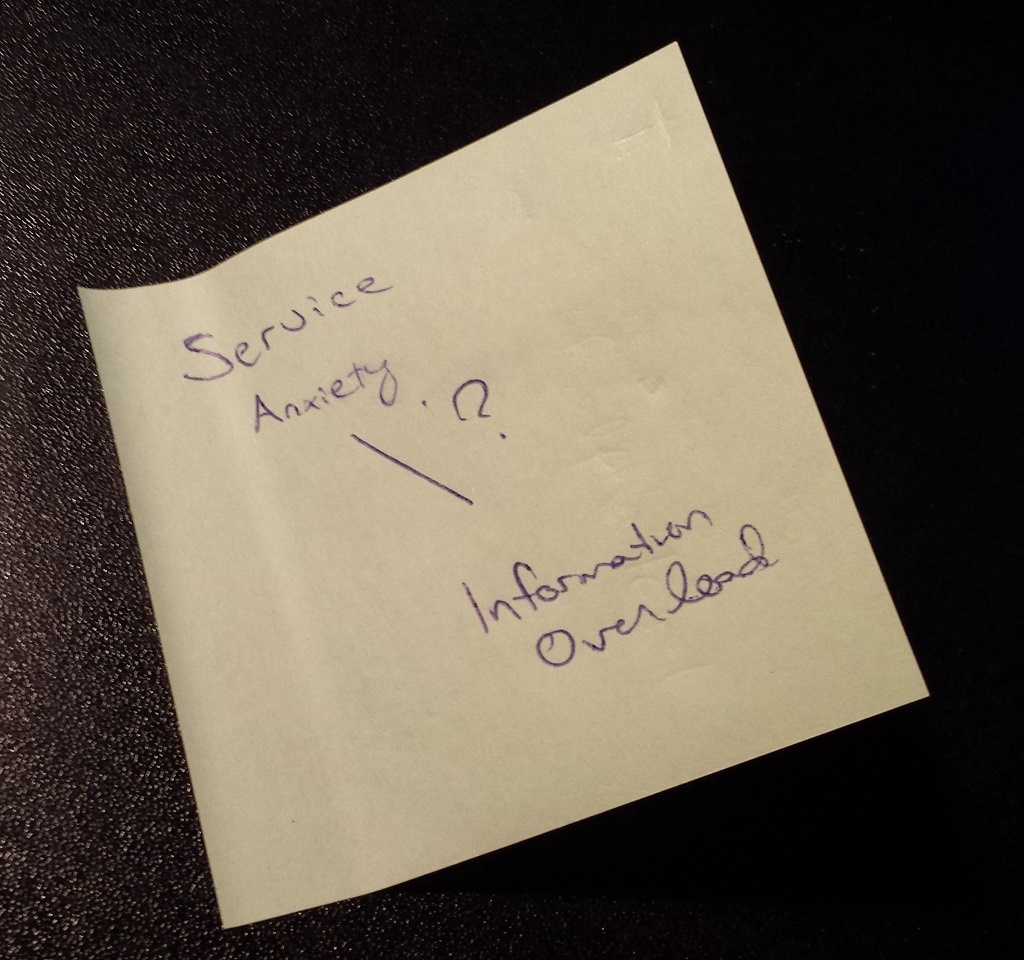 Service
Anxiety . ?
Information
Overload